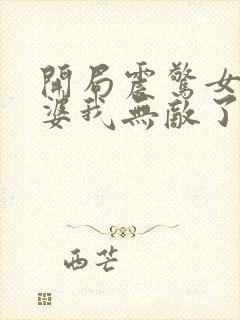 開局震驚女
婆我無敵了
西芒